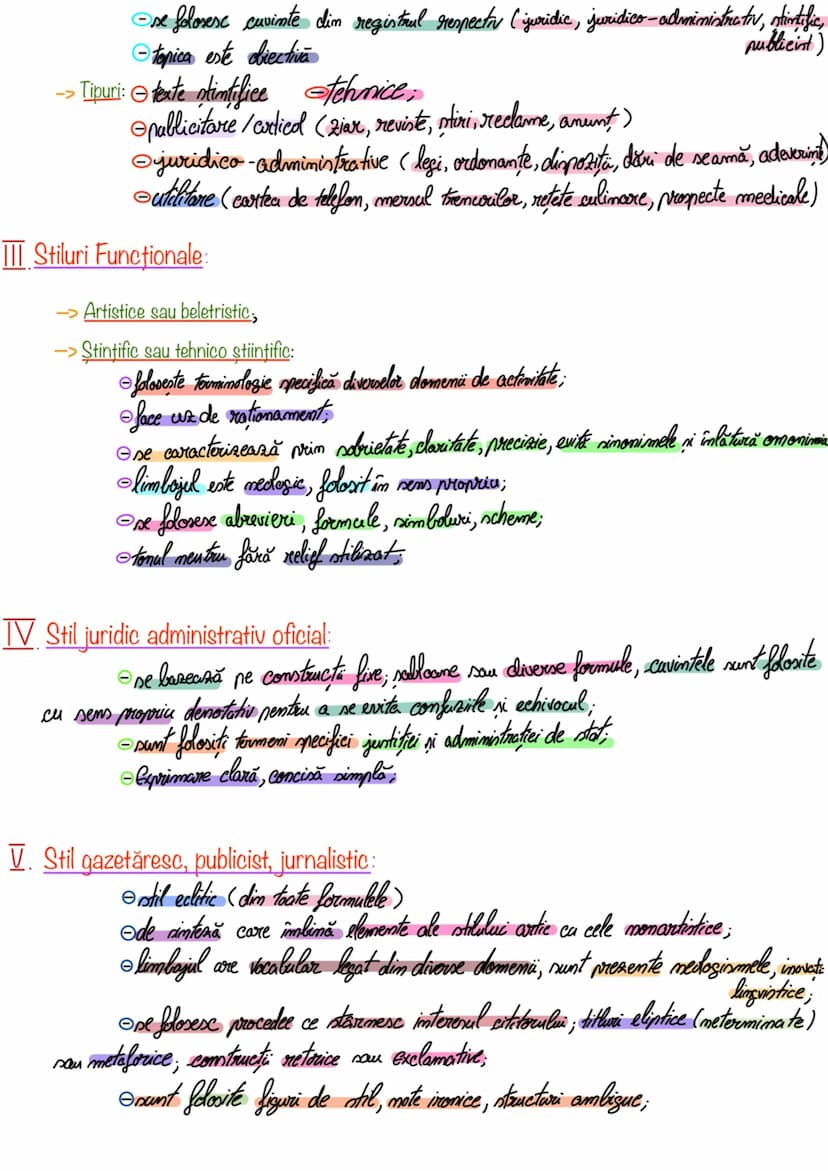 ⊖ se folosesc cuvinte din registrul respectiv (juridic, juridico-administrativ, științific,
publicist)
⊖ topica este obiectivă
-> Tipuri: ⊖ texte științifice ⊖ tehnice;
⊖ publicitare/articol (ziar, reviste, știri, reclame, anunț)
⊖ juridico-administrative (legi, ordonanțe, dispoziții, dări de seamă, adeverințe)
⊖ utilitare (cartea de telefon, mersul trenurilor, rețete culinare, prospecte medicale)
III. Stiluri Funcționale:
-> Artistice sau beletristic;
-> Științific sau tehnico științific:
⊖ folosește terminologie specifică diverselor domenii de activitate;
⊖ face uz de raționament;
⊖ se caracterizează prin sobrietate, claritate, precizie, evită sinonimele și înlătură omonimia
⊖ limbajul este neologic, folosit în sens propriu;
⊖ se folosesc abrevieri, formule, simboluri, scheme;
⊖ tonul neutru fără relief stilizat;
IV. Stil juridic administrativ oficial:
⊖ se bazează pe construcții fixe, șabloane sau diverse formule, cuvintele sunt folosite
cu sens propriu denotativ pentru a se evita confuziile și echivocul;
⊖ sunt folosiți termeni specifici justiției și administrației de stat;
⊖ Exprimare clară, concisă simplă;
V. Stil gazetăresc, publicist, jurnalistic:
⊖ stil eclitic (din toate formulele)
⊖ de sinteză care îmbină elemente ale stilului artic cu cele nonartistice;
⊖ limbajul are vocabular legat din diverse domenii, sunt prezente neologismele, inovații
lingvistice;
⊖ se folosesc procedee ce stârnesc interesul cititorului; titluri eliptice (neterminate)
sau metaforice; construcții retorice sau exclamative;
⊖ sunt folosite figuri de stil, note ironice, structuri ambigue;